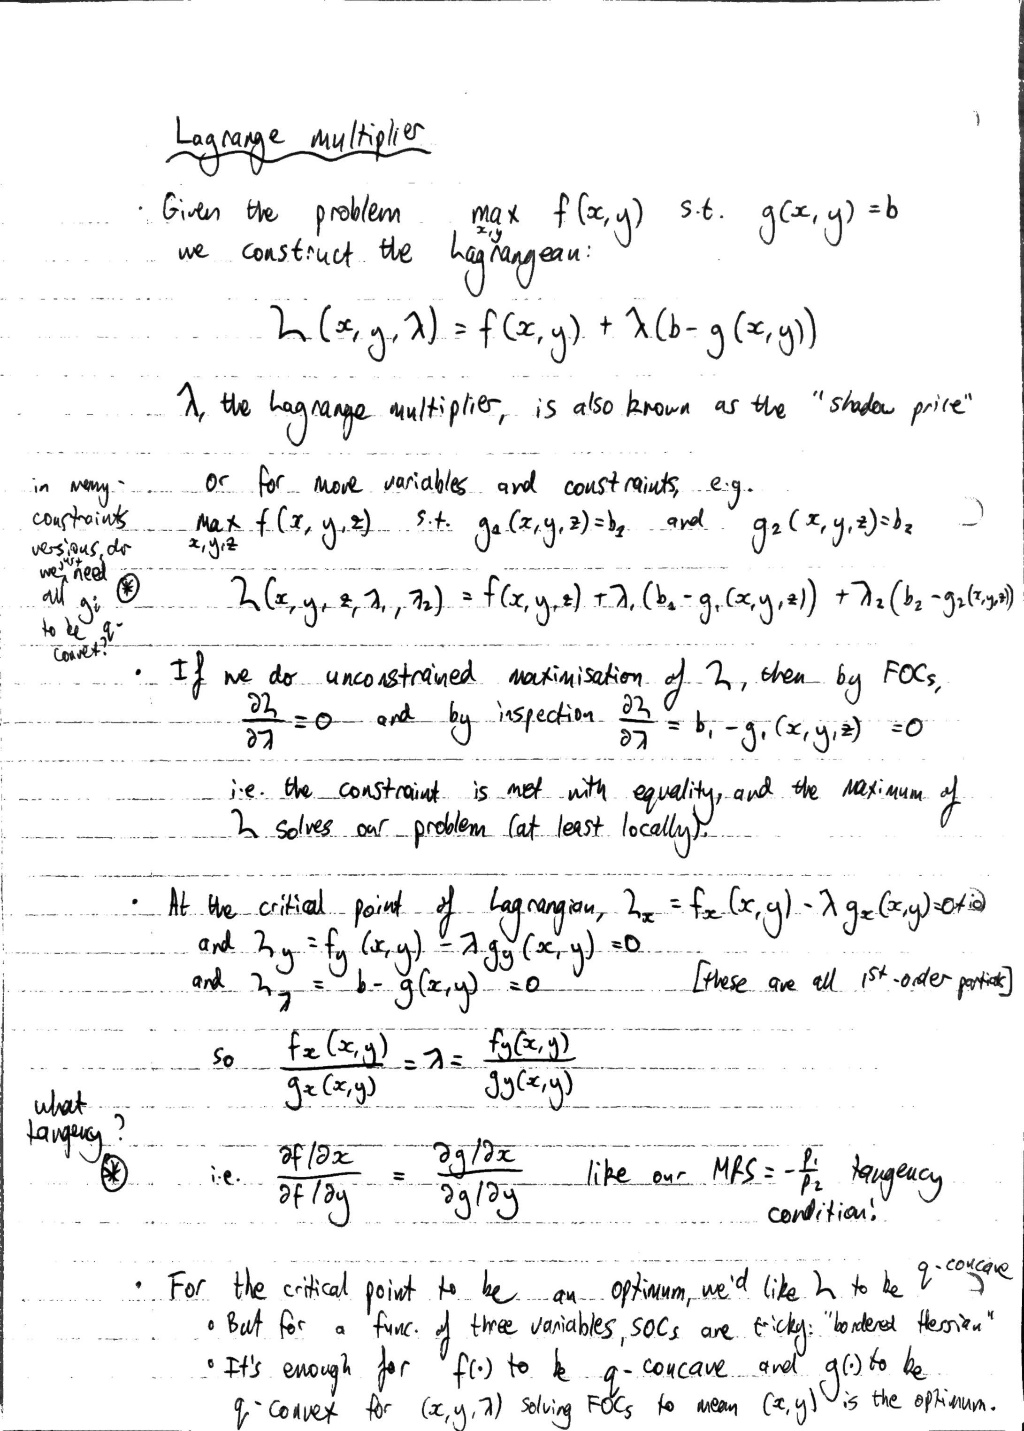 Lagrange multiplier
· Given the problem max f(x,y) s.t. g(x,y) = b
x,y
we construct the Lagrangean:
L(x, y, λ) = f(x,y) + λ(b - g(x,y))
λ, the Lagrange multiplier, is also known as the "shadow price"
or for more variables and constraints, e.g.
max f(x, y, z) s.t. g₁(x,y,z)=b₁ and g₂(x,y,z)=b₂
x,y,z
L(x, y, z, λ₁, λ₂) = f(x,y,z) + λ₁(b₁ - g₁(x,y,z)) + λ₂(b₂ - g₂(x,y,z))
in many-
constraints
versions, do
we just need
all gi
to be q-
convex?
⊛
· If we do unconstrained maximisation of L, then by FOCs,
∂L/∂λ = 0 and by inspection ∂L/∂λ = b₁ - g₁(x,y,z) = 0
i.e. the constraint is met with equality, and the maximum of
L solves our problem (at least locally).
· At the critical point of Lagrangian, Lx = fx(x,y) - λgx(x,y)=0
and Ly = fy(x,y) - λgy(x,y) = 0
and Lλ = b - g(x,y) = 0 [these are all 1st-order partials]
so fx(x,y)/gx(x,y) = λ = fy(x,y)/gy(x,y)
what
tangency?
⊛
i.e. ∂f/∂x / ∂f/∂y = ∂g/∂x / ∂g/∂y like our MRS = -P₁/P₂ tangency
condition!
· For the critical point to be an optimum, we'd like L to be q-concave
∘ But for a func. of three variables, SOCs are tricky: "bordered Hessian"
∘ It's enough for f(·) to be q-concave and g(·) to be
q-convex for (x,y,λ) solving FOCs to mean (x,y) is the optimum.